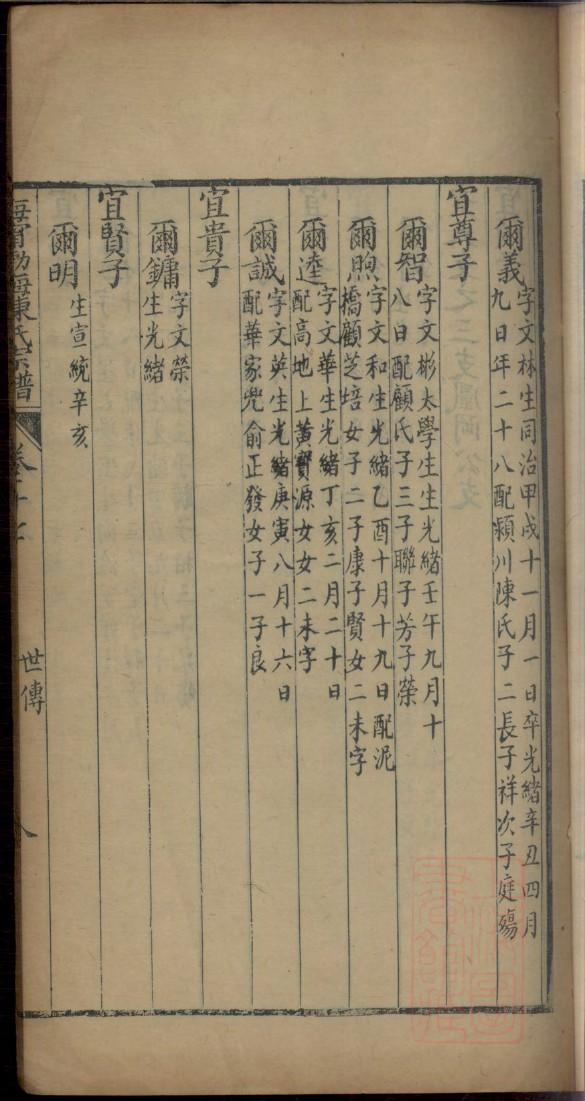 爾義
字文林生同治甲戌十一月一日卒光緒辛丑四月
九日年二十八配潁川陳氏子二長子祥次子庭殤
宜尊子
爾智
字文彬太學生生光緒壬午九月十
八日配顧氏子三子聯子芳子榮
爾煦
字文和生光緒乙酉十月十九日配泥
橋顧芝培女子二子康子賢女二未字
爾逵
字文華生光緒丁亥二月二十日
配高地上黃寶源女女二未字
爾誠
字文英生光緒庚寅八月十六日
配華家兜俞正發女子一子良
宜貴子
爾鏞
字文榮
生光緒
宜賢子
爾明
生宣統辛亥
海甯勃海陳氏宗譜
世傳